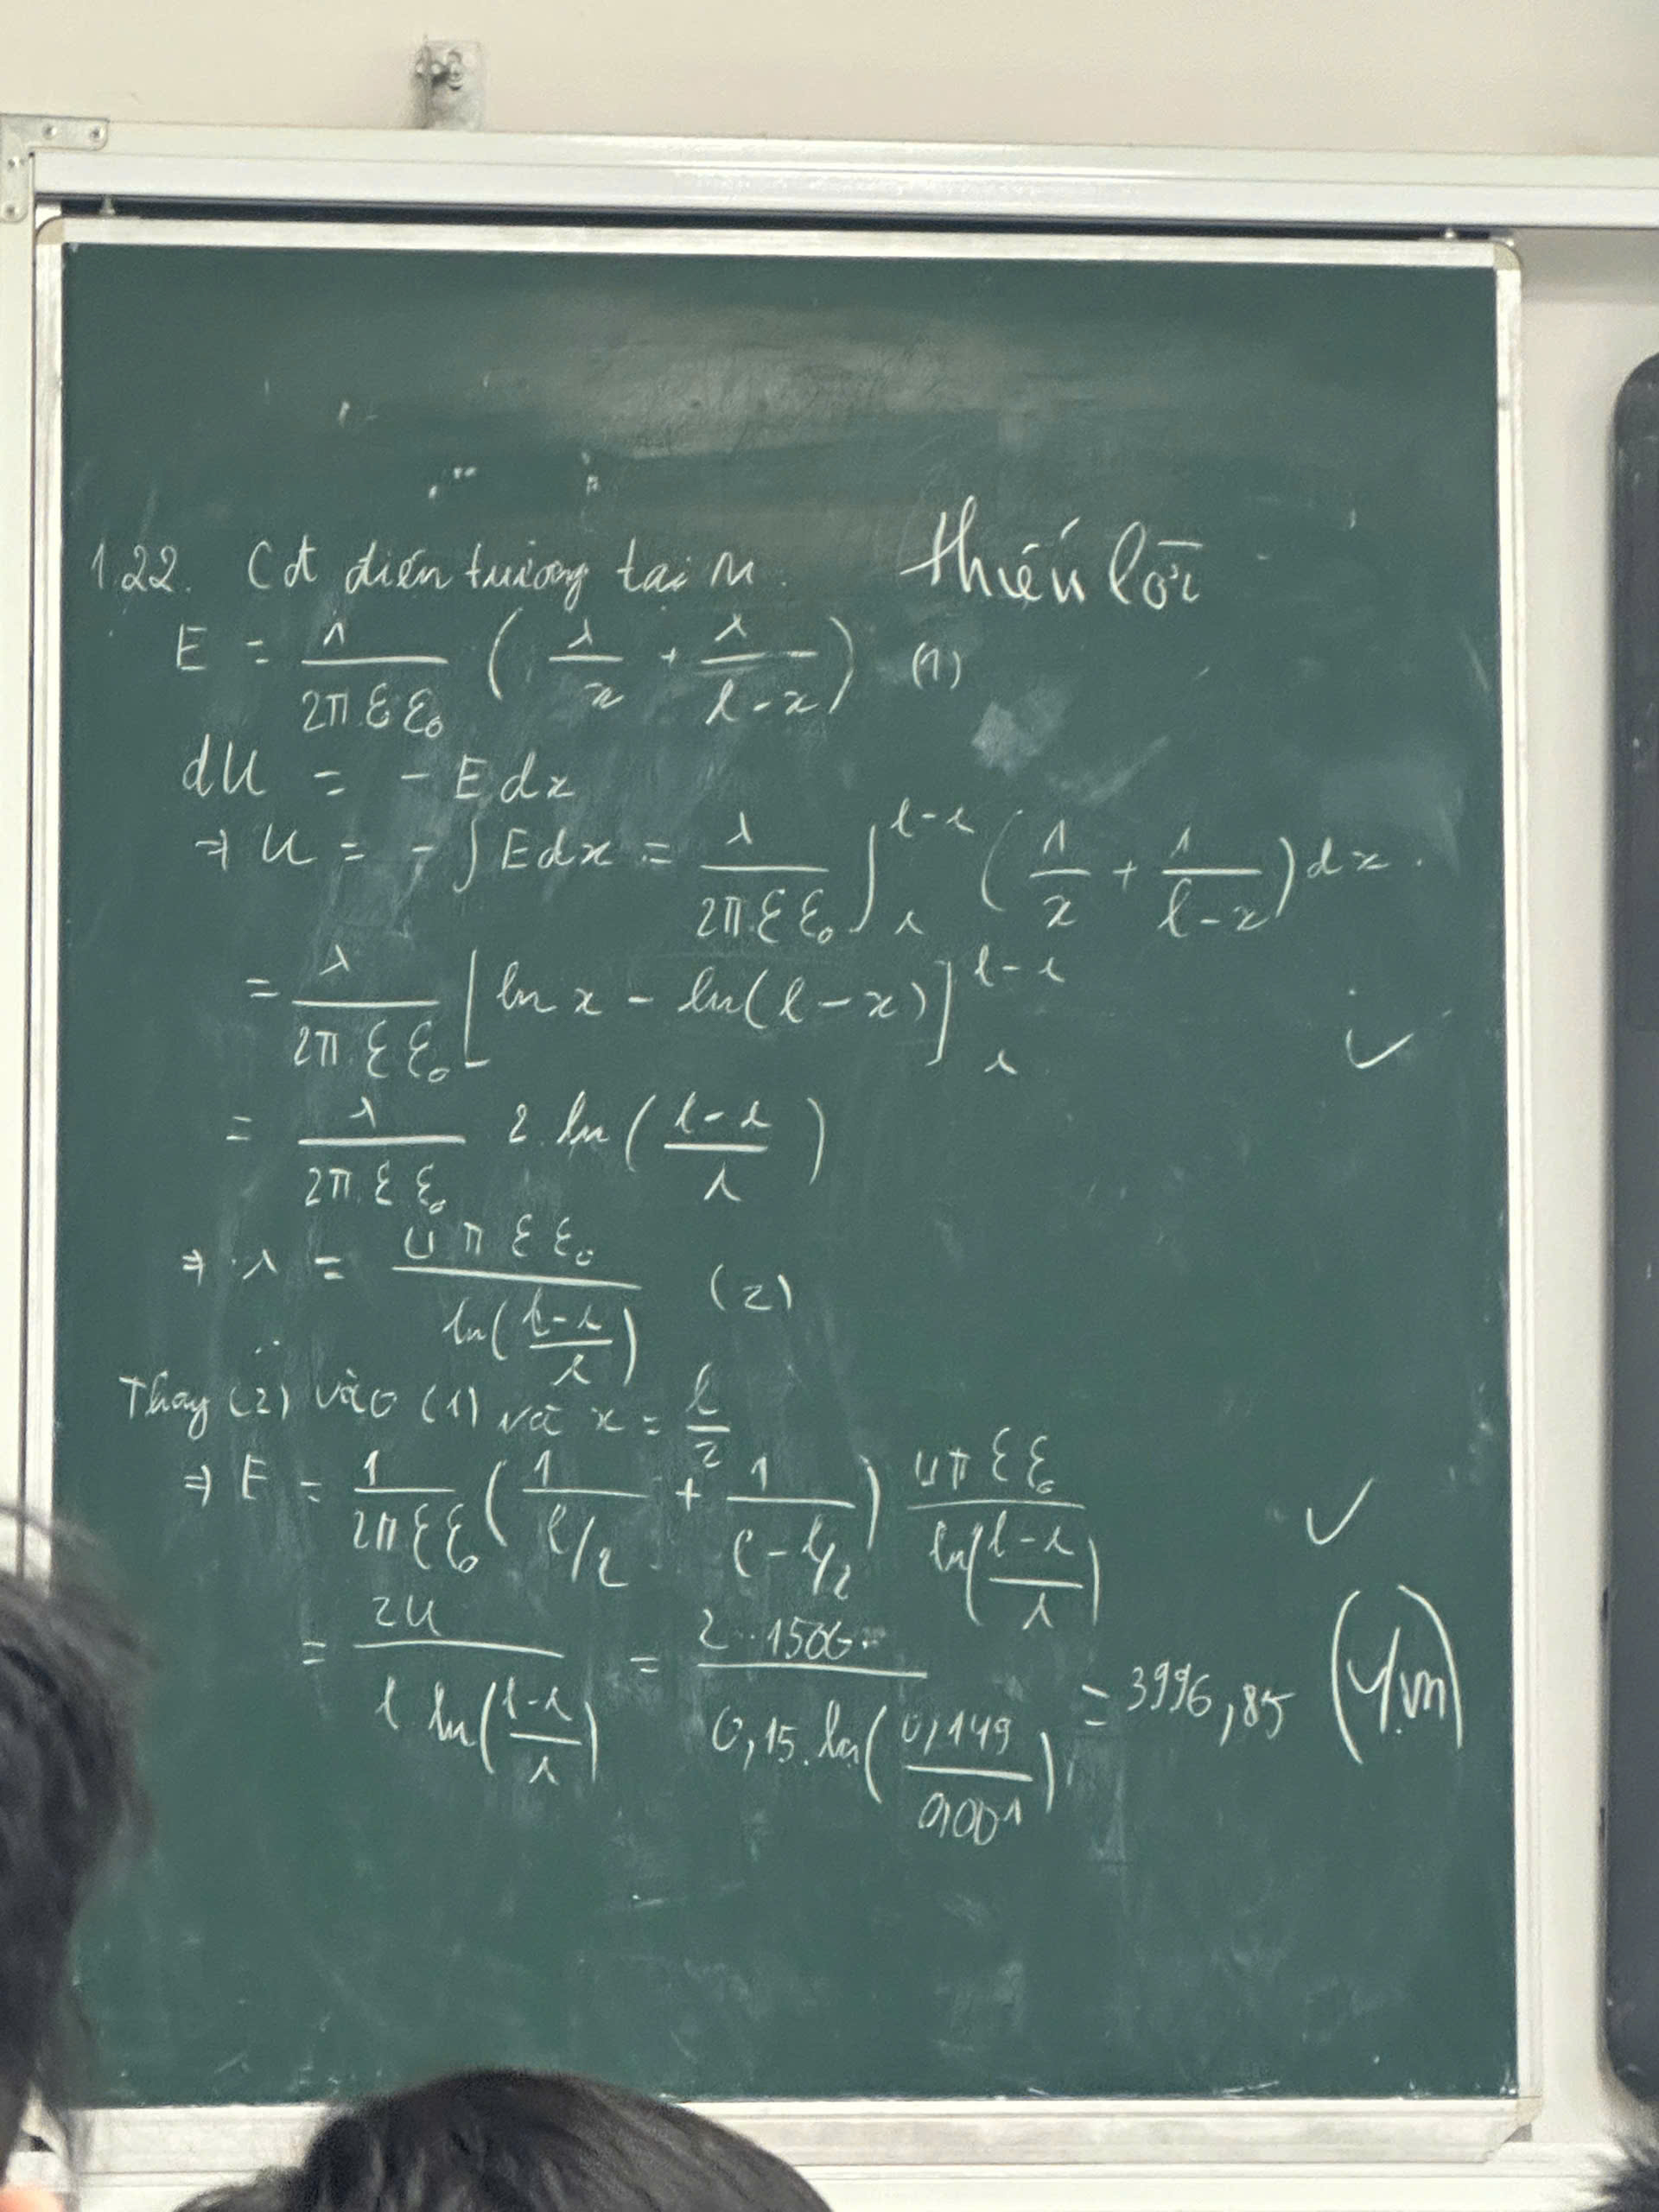 1.22. Cđ điện trường tại M. thiếu lời
E = 1/(2π.εε₀) (λ/x + λ/(l-x)) (1)
dU = - Edx
⇒ U = - ∫Edx = λ/(2π.εε₀) ∫_r^{l-r} (1/x + 1/(l-x)) dx.
= λ/(2π.εε₀) [ln x - ln(l-x)]_r^{l-r} ✓
= λ/(2π.εε₀) 2.ln((l-r)/r)
⇒ λ = Uπεε₀/ln((l-r)/r) (2)
Thay (2) vào (1) và x = l/2
⇒ E = 1/(2πεε₀) (1/(l/2) + 1/(l-l/2)) Uπεε₀/ln((l-r)/r) ✓
= 2U/(l.ln((l-r)/r)) = 2.1500/(0,15.ln(0,149/0,001)) = 3996,85 (V/m)